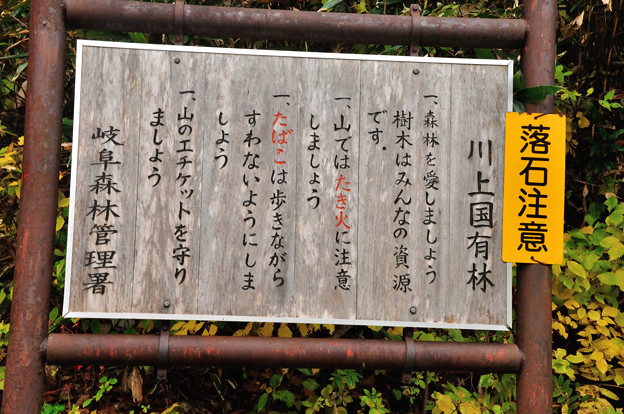 川上国有林
一、森林を愛しましょう
樹木はみんなの資源
です．
一、山ではたき火に注意
しましょう
一、たばこは歩きながら
すわないようにしま
しょう
一、山のエチケットを守り
ましょう
岐阜森林管理署
落石注意